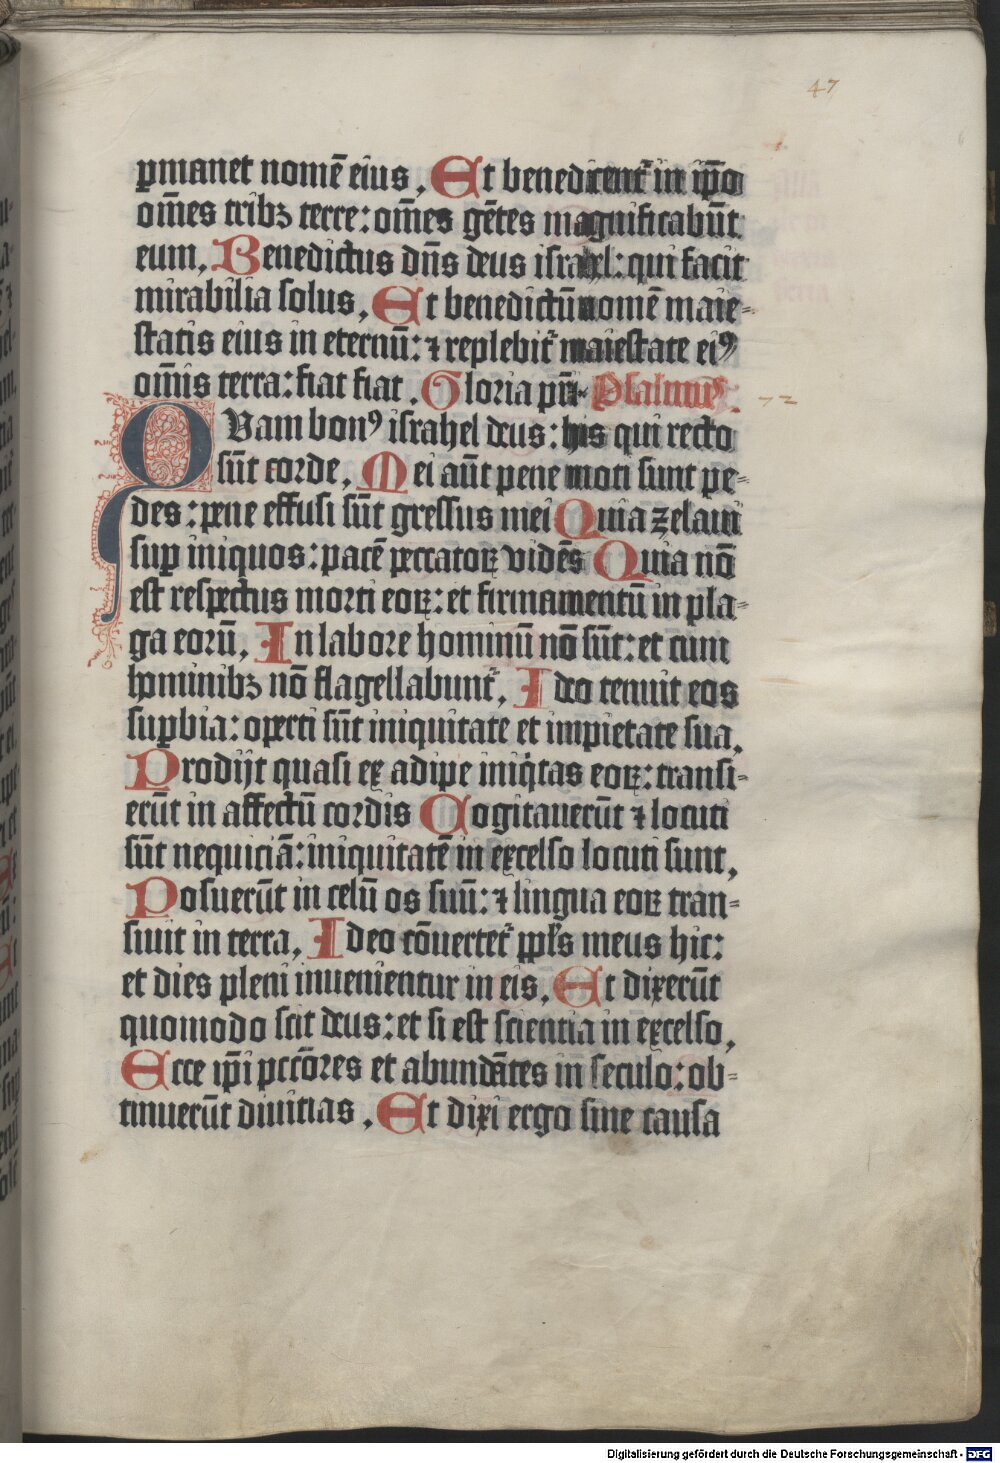 47
ꝑmanet nomē eius. Et benedicent᷑ in ip̄o
om̄es tribꝫ terre: om̄es gētes magnificabūt
eum. Benedictus dn̄s deus israhel: qui facit
mirabilia solus. Et benedictū nomē maie-
statis eius in eternū: ⁊ replebit᷑ maiestate eiꝰ
om̄is terra: fiat fiat. Gloria pr̄i. Psalmus.
72
QVam bonꝰ israhel deus: his qui recto
sūt corde. Mei aūt pene moti sunt pe-
des: pene effusi sūt gressus mei Quia zelaui
suꝑ iniquos: pacē peccatoꝝ vidēs Quia nō
est respectus morti eoꝝ: et firmamentū in pla-
ga eorū. In labore hominū nō sūt: et cum
hominibꝫ nō flagellabunt᷑. Ideo tenuit eos
suꝑbia: operti sūt iniquitate et impietate sua.
Prodijt quasi ex adipe iniqͥtas eoꝝ: transi-
erūt in affectū cordis Cogitauerūt ⁊ locuti
sūt nequiciā: iniquitatē in excelso locuti sunt.
Posuerūt in celū os suū: ⁊ lingua eoꝝ tran-
siuit in terra. Ideo cōuertet᷑ ppl̄s meus hic:
et dies pleni inuenientur in eis. Et dixerūt
quomodo scit deus: et si est scientia in excelso.
Ecce ip̄i pctō̄res et abundātes in seculo: ob-
tinuerūt diuitias. Et dixi ergo sine causa
Digitalisierung gefördert durch die Deutsche Forschungsgemeinschaft - DFG